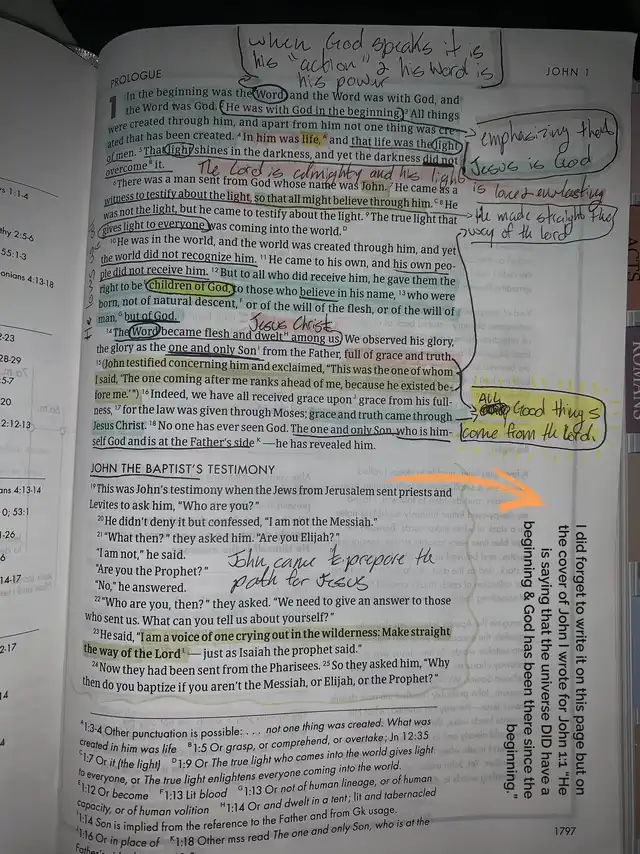 when God speaks it is
his "action" & his word is
his power
PROLOGUE
JOHN 1
1 In the beginning was the Word, and the Word was with God, and
the Word was God. ² He was with God in the beginning. ³ All things
were created through him, and apart from him not one thing was cre-
ated that has been created. ⁴ In him was life,ᴬ and that life was the light
of men. ⁵ That light shines in the darkness, and yet the darkness did not
overcomeᴮ it.
emphasizing that
Jesus is God
The Lord is almighty and his light
is loved everlasting
⁶ There was a man sent from God whose name was John. ⁷ He came as a
witness to testify about the light, so that all might believe through him.ᶜ ⁸ He
was not the light, but he came to testify about the light. ⁹ The true light that
gives light to everyone was coming into the world.ᴰ
He made straight the
way of the lord
¹⁰ He was in the world, and the world was created through him, and yet
the world did not recognize him. ¹¹ He came to his own, and his own peo-
ple did not receive him. ¹² But to all who did receive him, he gave them the
right to be children of God, to those who believe in his name, ¹³ who were
born, not of natural descent, or of the will of the flesh, or of the will of
man, but of God.
Jesus Christ
¹⁴ The Word became flesh and dwelt among us. We observed his glory,
the glory as the one and only Son from the Father, full of grace and truth.
¹⁵ (John testified concerning him and exclaimed, "This was the one of whom
I said, 'The one coming after me ranks ahead of me, because he existed be-
fore me.'") ¹⁶ Indeed, we have all received grace upon grace from his full-
ness, ¹⁷ for the law was given through Moses; grace and truth came through
Jesus Christ. ¹⁸ No one has ever seen God. The one and only Son, who is him-
self God and is at the Father's sideᴷ — he has revealed him.
All
Good things
come from the Lord.
JOHN THE BAPTIST'S TESTIMONY
¹⁹ This was John's testimony when the Jews from Jerusalem sent priests and
Levites to ask him, "Who are you?"
²⁰ He didn't deny it but confessed, "I am not the Messiah."
²¹ "What then?" they asked him. "Are you Elijah?"
"I am not," he said.
"Are you the Prophet?"
"No," he answered.
John came to prepare the
path for Jesus
²² "Who are you, then?" they asked. "We need to give an answer to those
who sent us. What can you tell us about yourself?"
²³ He said, "I am a voice of one crying out in the wilderness: Make straight
the way of the Lord — just as Isaiah the prophet said."
²⁴ Now they had been sent from the Pharisees. ²⁵ So they asked him, "Why
then do you baptize if you aren't the Messiah, or Elijah, or the Prophet?"
I did forget to write it on this page but on
the cover of John I wrote for John 1:1 "He
is saying that the universe DID have a
beginning & God has been there since the
beginning."
ᴬ1:3-4 Other punctuation is possible: . . . not one thing was created. What was
created in him was life ᴮ1:5 Or grasp, or comprehend, or overtake; Jn 12:35
ᶜ1:7 Or it (the light) ᴰ1:9 Or The true light who comes into the world gives light
to everyone, or The true light enlightens everyone coming into the world.
ᴱ1:12 Or become ꟳ1:13 Lit blood ᴳ1:13 Or not of human lineage, or of human
capacity, or of human volition ᴴ1:14 Or and dwelt in a tent; lit and tabernacled
ᴵ1:14 Son is implied from the reference to the Father and from Gk usage.
ᴶ1:16 Or in place of ᴷ1:18 Other mss read The one and only Son, who is at the
1797
ACTS
ROMANS